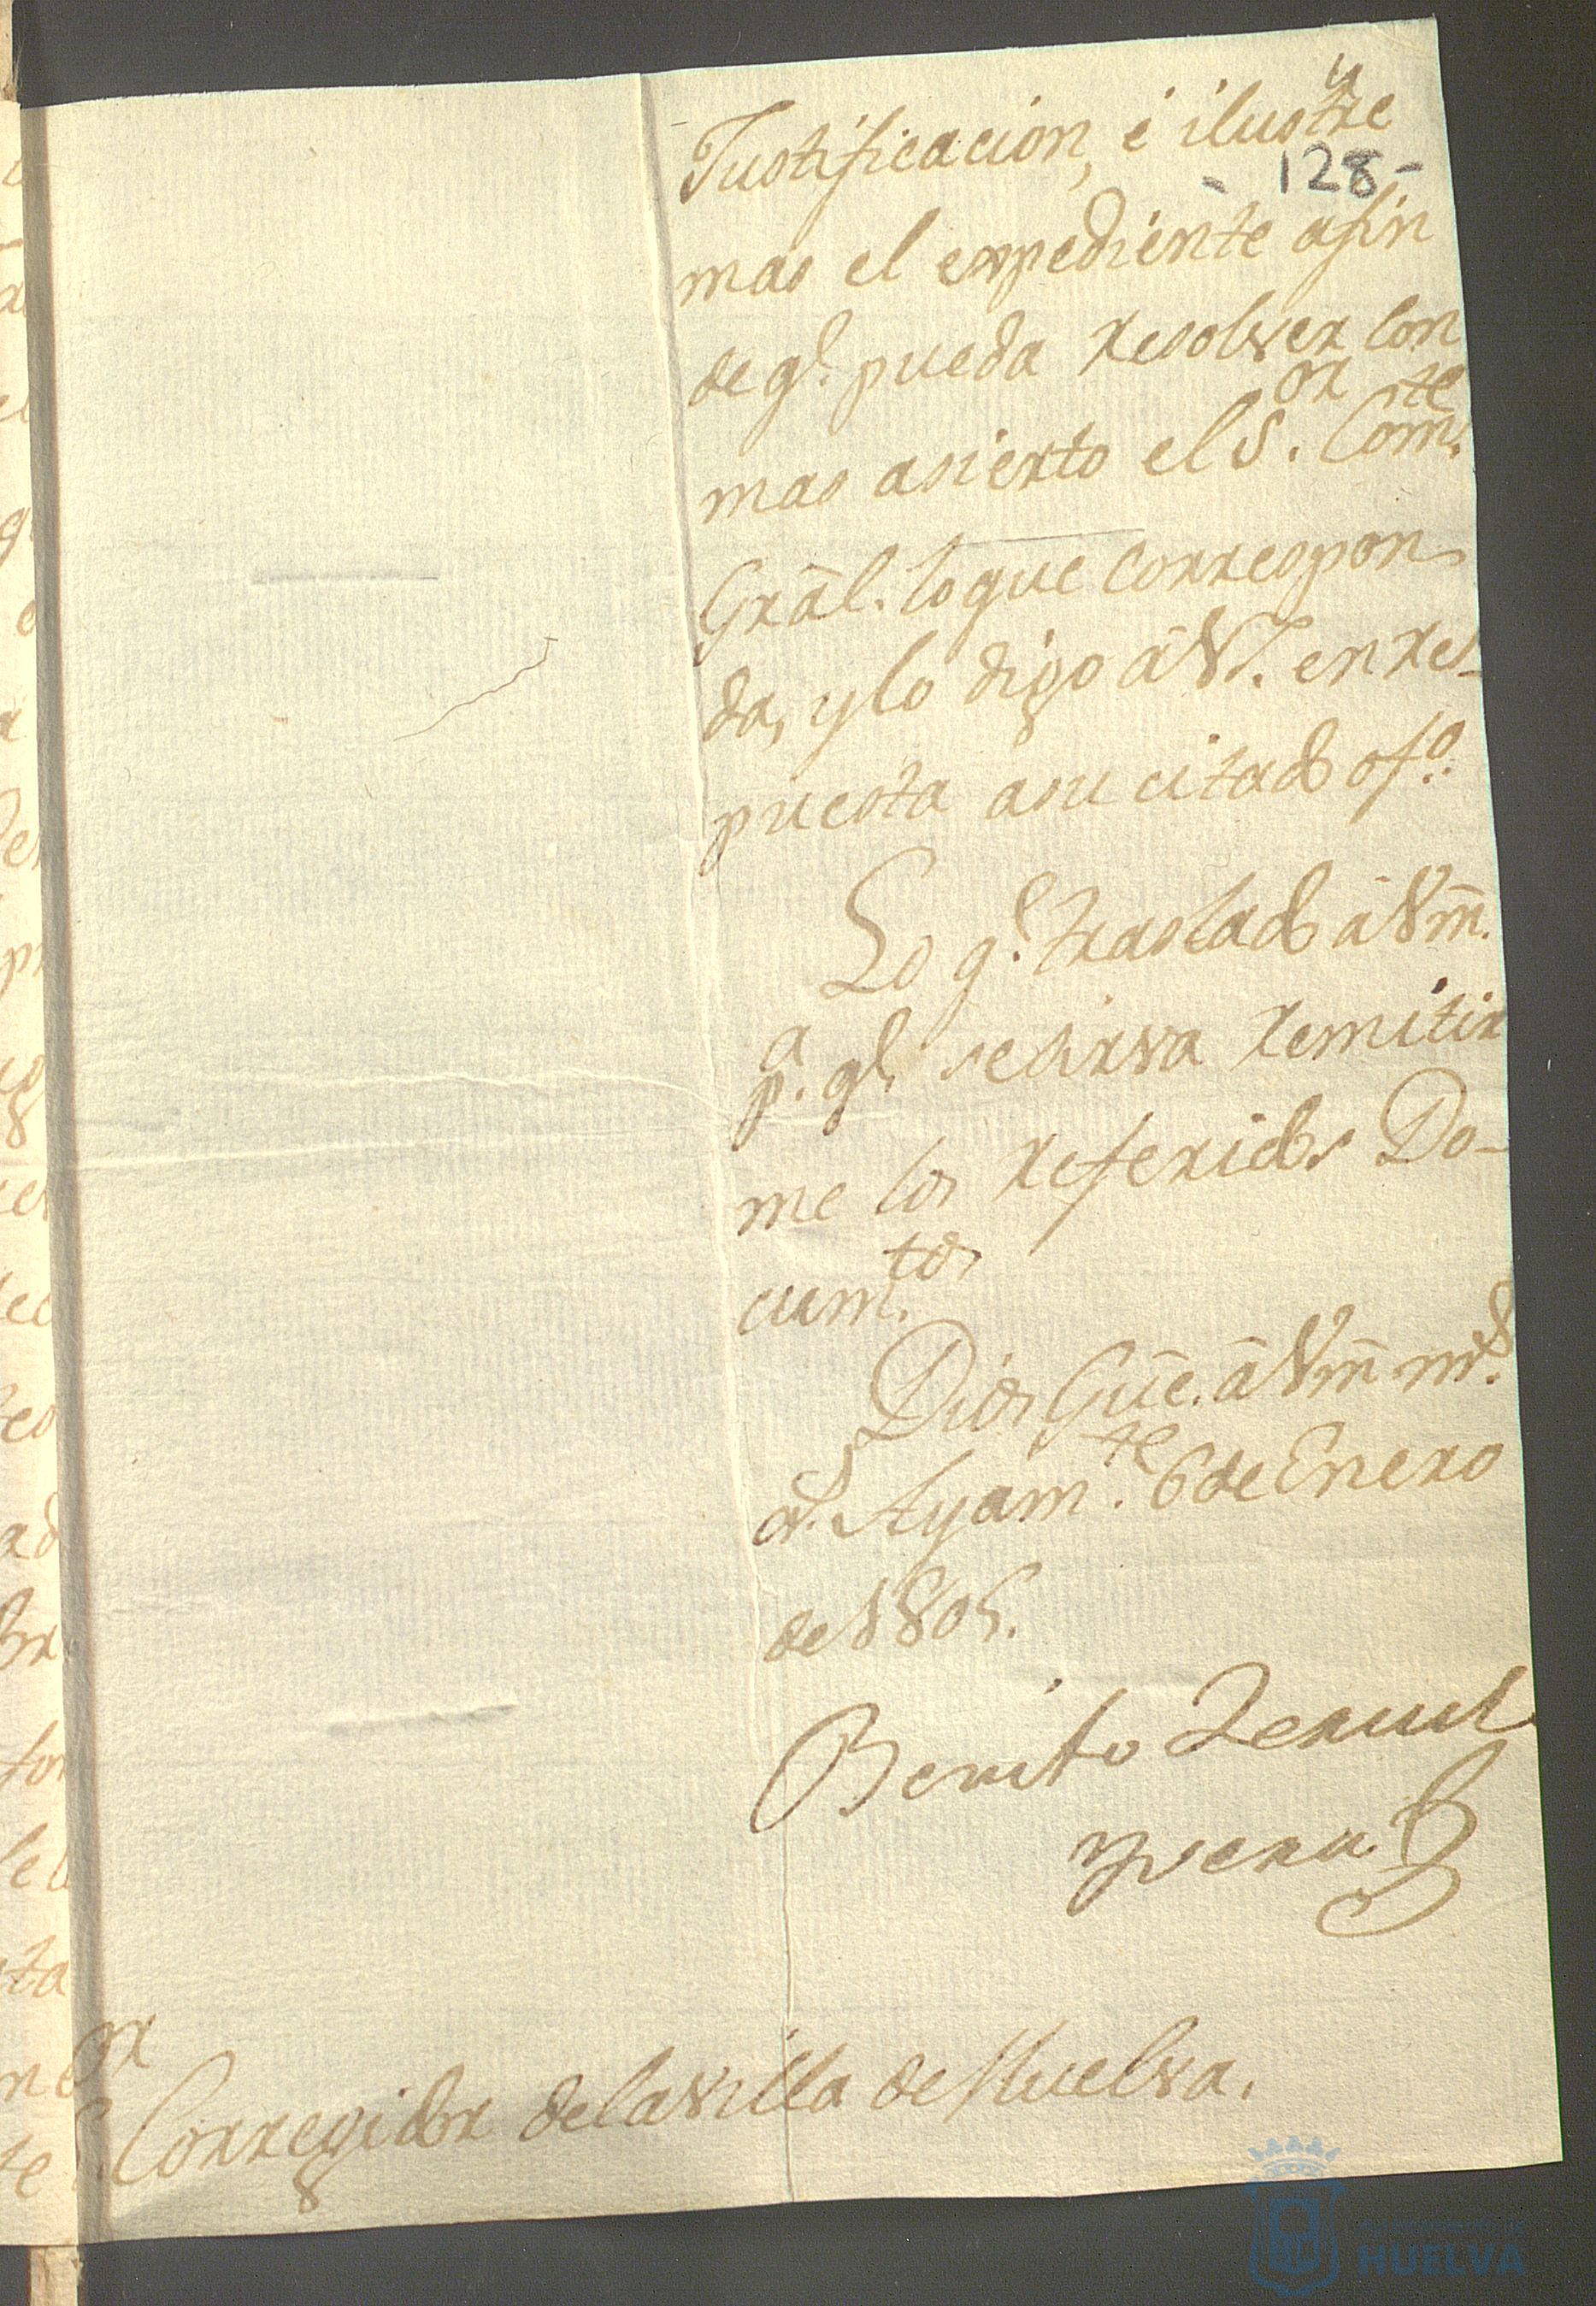 y
Justificacion, e ilustre
- 128 -
mas el expediente afin
de q.e pueda resolver con
mas asierto el S.or Com.te
Grãl. lo que correspon
da, y lo digo à V.S. en res-
puesta a su citado of.o
Lo q.e traslado à Vm̃.
p.a q.e se sirva remitir
me los referidos Do-
cum.tos
Dios Gũe. à Vm̃ m.s
a.s Ayam.te 6 de Enero
de 1805.
Benito Teruel
y vera
S.or Corregidor de la villa de Huelva.
HUELVA